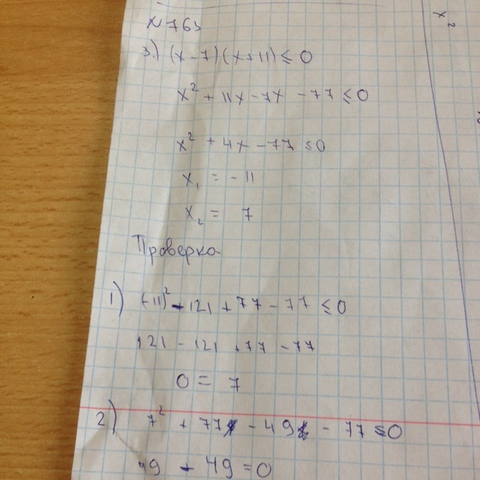 N 763
3.) (x-7)(x+11) ≤ 0
x² + 11x - 7x - 77 ≤ 0
x² + 4x - 77 ≤ 0
x₁ = - 11
x₂ = 7
Проверка
1) (-11)² - 121 + 77 - 77 ≤ 0
121 - 121 + 77 - 77
0 = 7
2) 7² + 77 - 49 - 77 ≤ 0
49 - 49 = 0
x₂